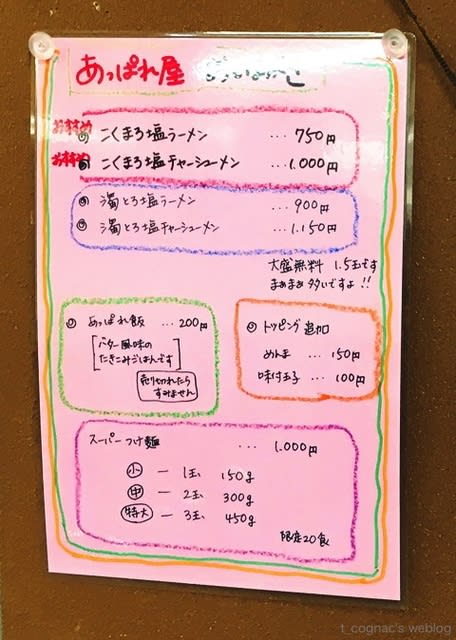 あっぱれ屋 おかみせ
おすすめ ◎ こくまろ塩ラーメン … 750円
おすすめ ◎ こくまろ塩チャーシューメン … 1.000円
◎ 濁とろ塩ラーメン … 900円
◎ 濁とろ塩チャーシューメン … 1.150円
大盛無料 1.5玉です
まぁまぁ多いですよ!!
◎ あっぱれ飯 … 200円
[バター風味の
たきこみごはんです]
売り切れたら
すみません
◎ トッピング追加
めんま … 150円
味付玉子 … 100円
スーパーつけ麺 … 1.000円
小 ー 1玉 150g
中 ー 2玉 300g
特大 ー 3玉 450g
限定20食
t cognac's weblog